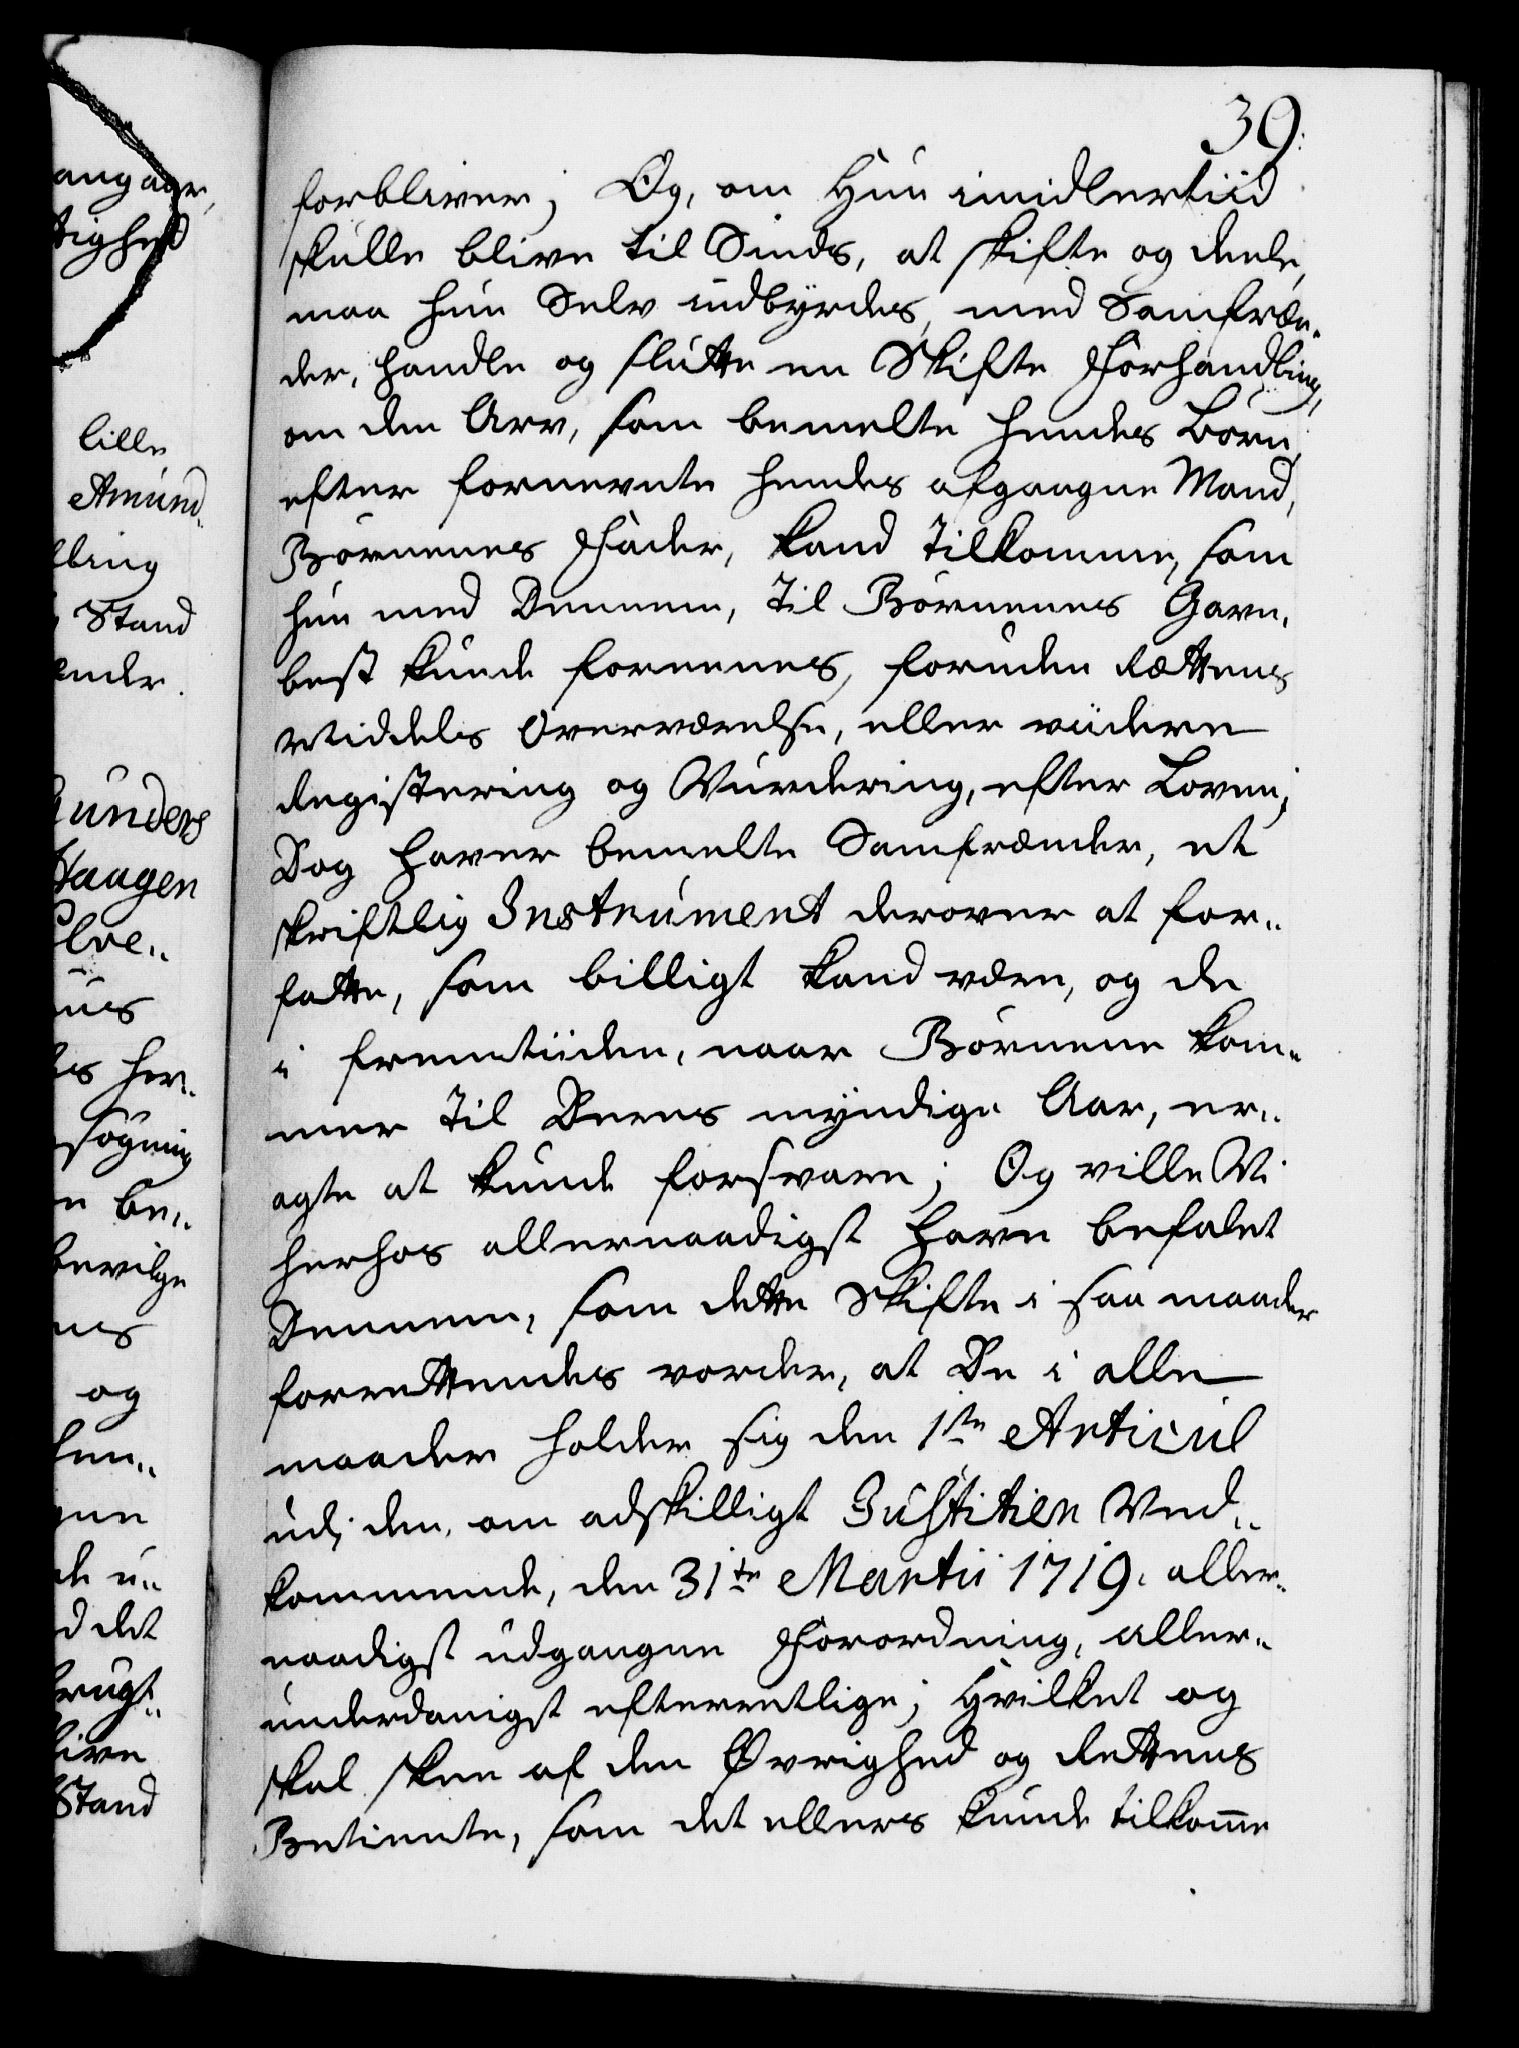 39.
forbliver; Og, om Hun imidlertiid
skulle blive til Sinds, at skifte og deele,
maa hun Selv indbyrdes, med Samfræn-
der, handle og slutte en Skifte Forhandling,
om den Arv, som bemelte hendes Börn,
efter fornevnte hendes afgangne Mand,
Börnenes Fader, kand tilkomme, som
hun med Dennem, til Börnenes Gavn,
best kunde foreenes, foruden Rættens
Middels Overværelse, eller viidere
Registering og Vurdering, efter Loven;
Dog haver bemelte Samfrænder, et
skriftlig Instrument derover at for-
fatte, som billigt kand være, og de
i fremtiiden, naar Börnene kom-
mer til Deres myndige Aar, er-
agte at kunde forsvare; Og ville Vi
herhos allernaadigst have befalet
Dennem, som dette Skifte i saa maader
forrettendes vorder, at De i alle
maader holder sig den 1ste Articul
udi den, om adskilligt Justitien Ved-
kommende, den 31te Martii 1719. aller-
naadigst udgangne Forordning, aller-
underdanigst efterretlige; Hvilket og
skal skee af den Øvrighed og Rettens
Betiente, som det ellers kunde tilkomme
angaaer,
tighed
lille
Amund-
ling
Stand
ender.
Gunders
Haagen
Elve-
es her-
søgning
be-
bevilge
og
d det
brugt-
Stand